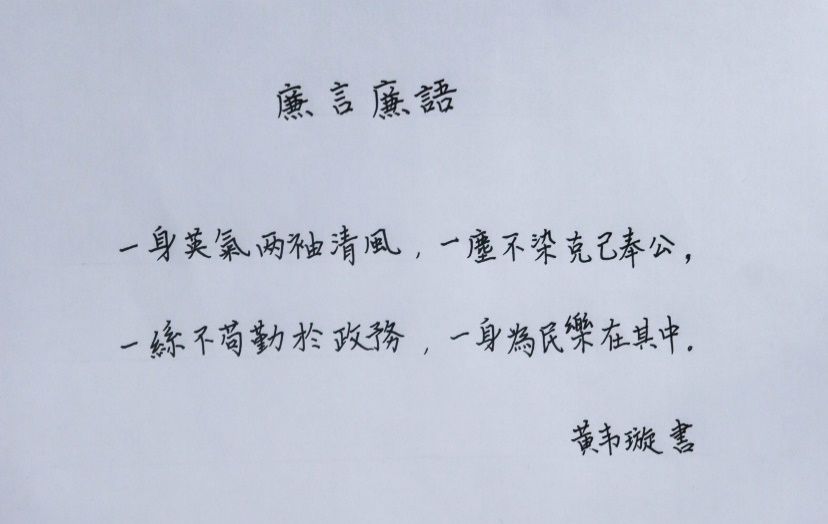 廉言廉語
一身英氣两袖清風，一塵不染克己奉公，
一絲不苟勤於政務，一身為民樂在其中.
黃韦璇書